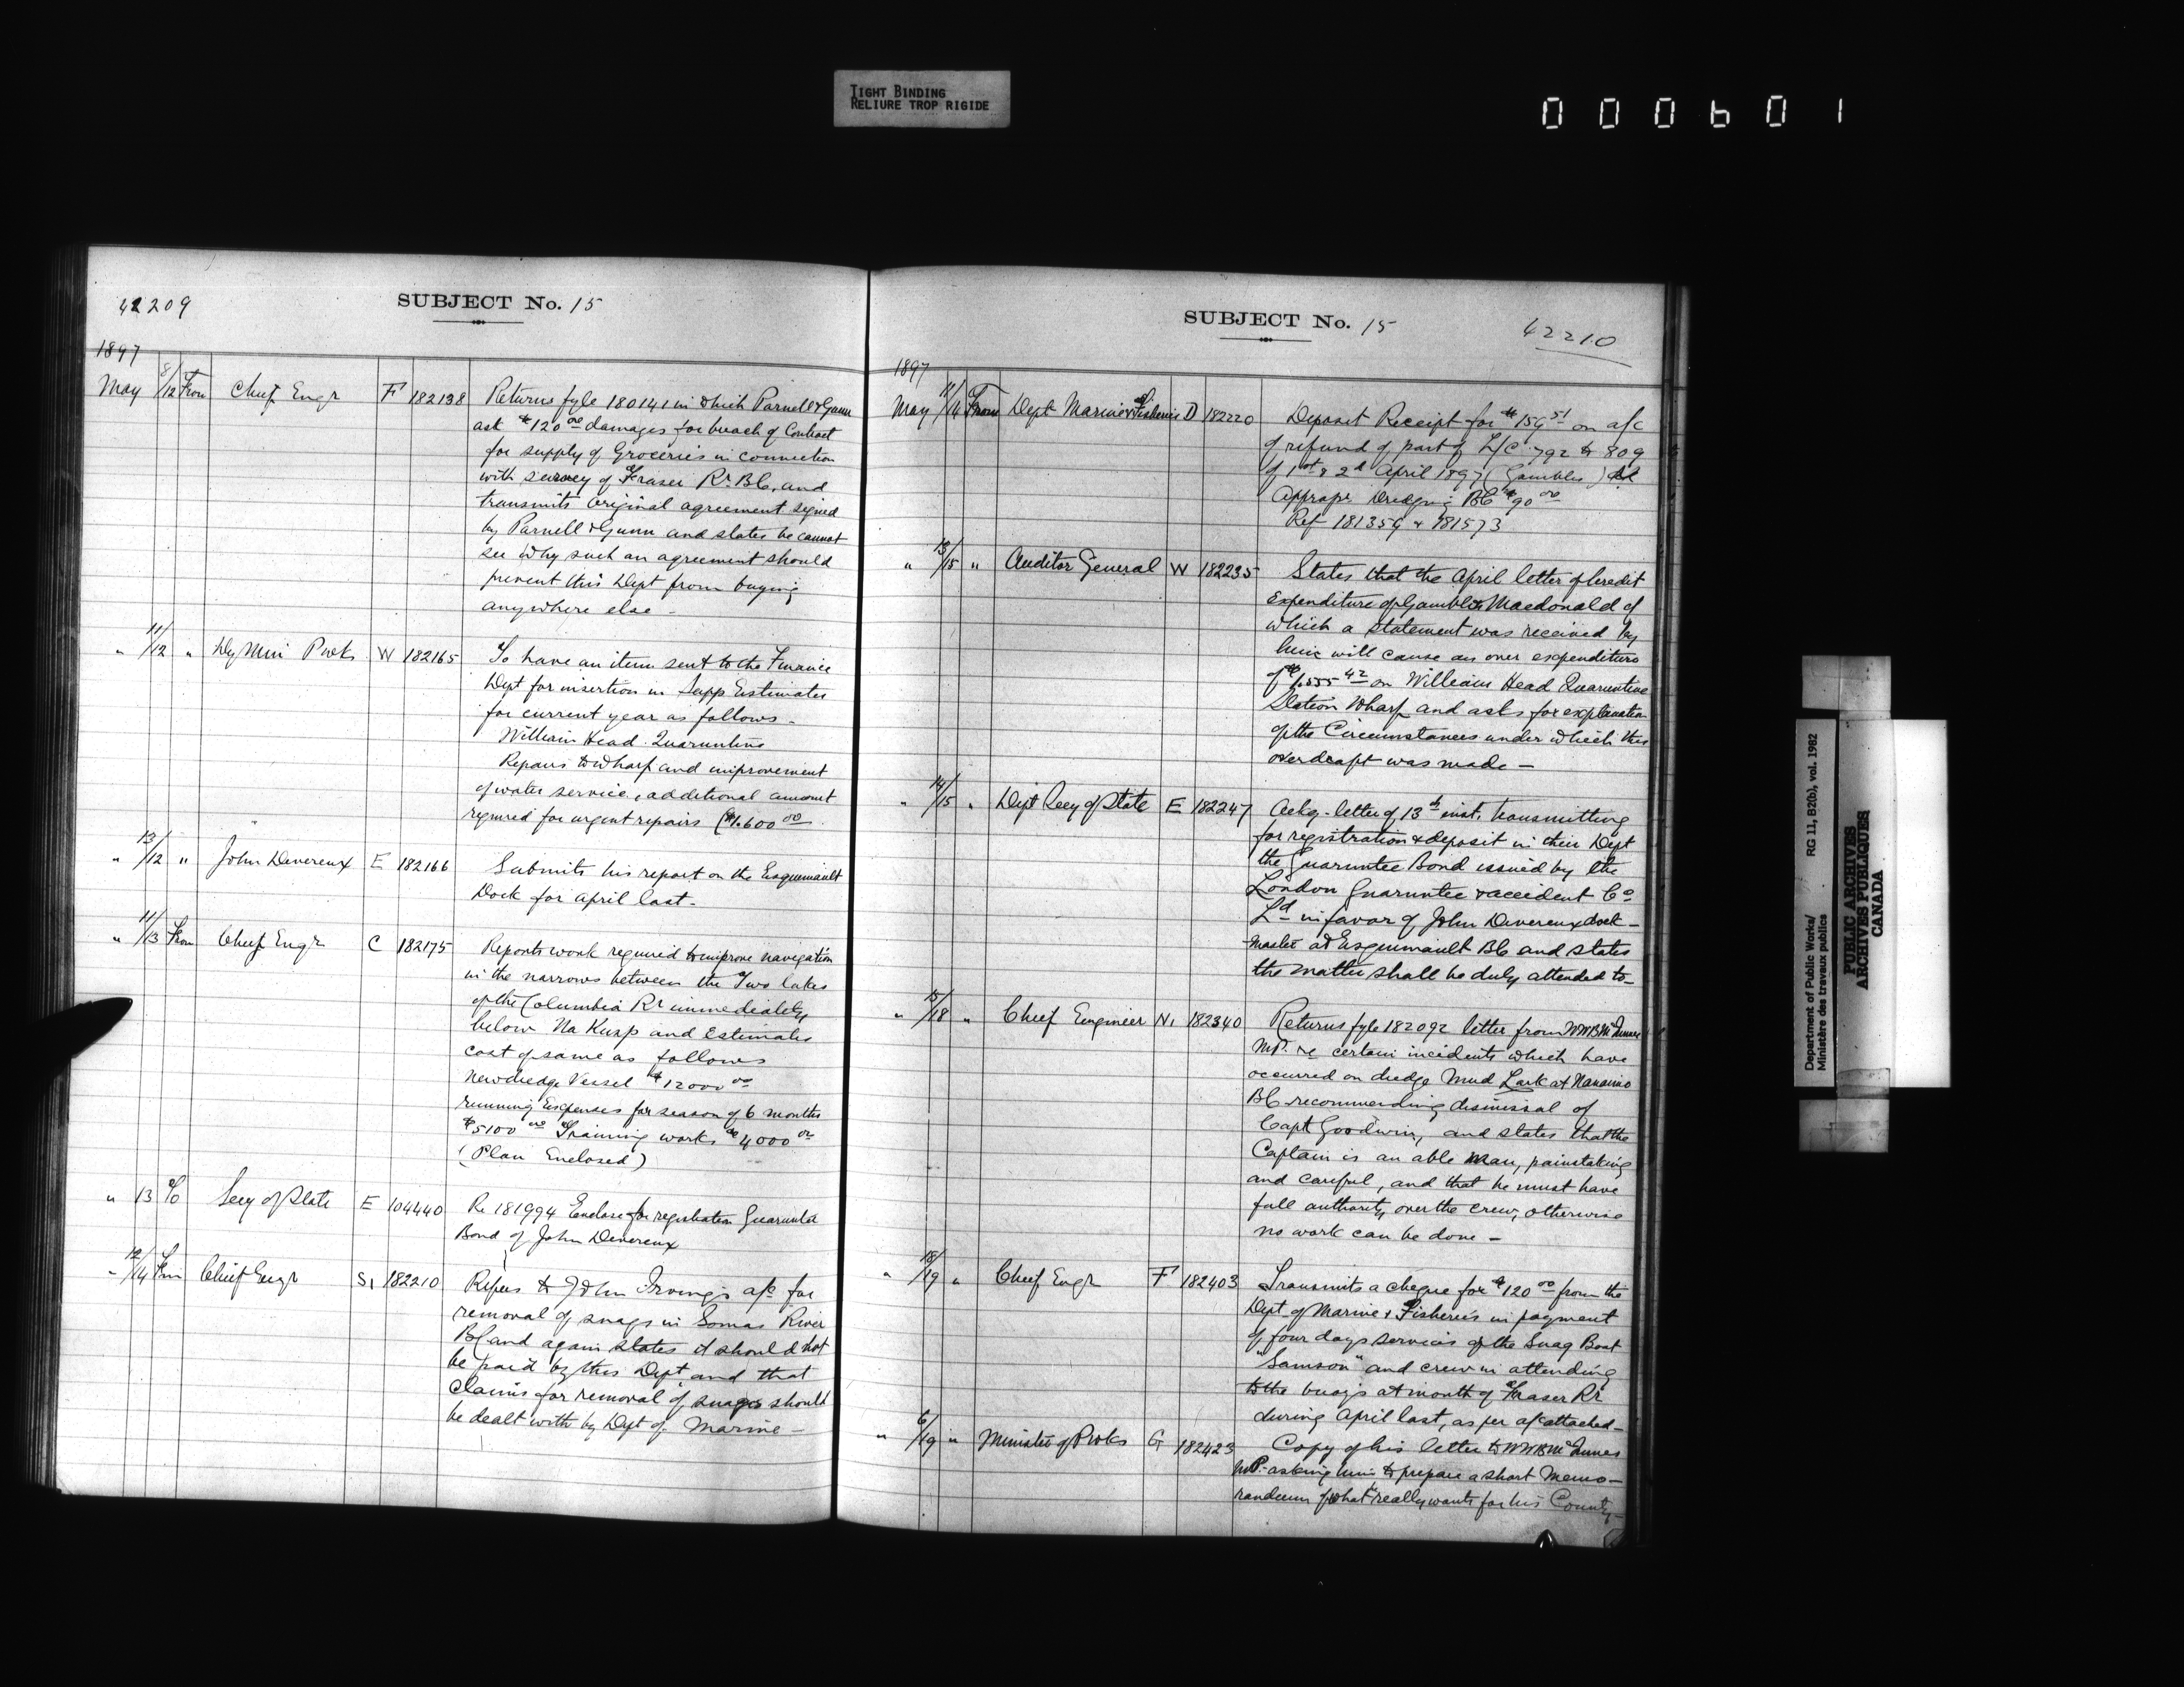 TIGHT BINDING
RELIURE TROP RIGIDE
000601
42209
SUBJECT No. 15
1897
May 8/12 From Chief Engr F 182138 Returns fyle 180141 in which Parnell & Gunn
ask $120 00 damages for breach of Contract
for supply of Groceries in connection
with survey of Fraser Rr. BC, and
transmits original agreement signed
by Parnell & Gunn and states he cannot
see why such an agreement should
prevent this Dept from buying
anywhere else -
" 11/12 " Dy Min Pwks W 182165 To have an item sent to the Finance
Dept for insertion in Supp Estimates
for current year as follows -
William Head Quarantine
Repairs to wharf and improvement
of water service, additional amount
required for urgent repairs ($1.600 00
" 13/12 " John Devereux E 182166 Submits his report on the Esquimault
Dock for April last.
" 11/13 From Chief Engr C 182175 Reports work required to improve navigation
in the narrows between the Two lakes
of the Columbia Rr immediately
below Na Kusp and Estimates
cost of same as follows
New dredge Vessel $12000 00
running Expenses for season of 6 months
$5100 00 Training works $4000 00
(Plan Enclosed)
" 13 To Secy of State E 104440 Re 181994 Enclose for registration Guarantee
Bond of John Devereux
" 12/14 From Chief Engr S1 182210 Refers to John Irving's a/c for
removal of snags in Somas River
BC and again states it should not
be paid by this Dept and that
Claims for removal of snags should
be dealt with by Dept of Marine -
SUBJECT No. 15
42210
1897
May 11/14 From Dept Marine & Fisheries D 182220 Deposit Receipt for $159 51 on a/c
of refund of part of L/C 792 & 809
of 1st & 2d April 1897 (Gambles)
Approp. Dredging BC $90 00
Ref 181359 & 181573
" 13/15 " Auditor General W 182235 States that the April letter of Credit
Expenditure of Gamble & Macdonald of
which a statement was received by
him will cause an over expenditure
of $1.555 42 on William Head Quarantine
Station Wharf and asks for explanation
of the Circumstances under which this
overdraft was made -
" 14/15 " Dept Secy of State E 182247 Ackg. letter of 13th inst. transmitting
for registration & deposit in their Dept
the Guarantee Bond issued by the
London Guarantee & accident Co
Ld in favor of John Devereux dock-
master at Esquimault BC and states
the matter shall be duly attended to -
" 15/18 " Chief Engineer N1 182340 Returns fyle 182092 letter from WWB McInnes
MP. re certain incidents which have
occurred on dredge Mud Lark at Nanaimo
BC recommending dismissal of
Capt Goodwin, and states that the
Captain is an able man, painstaking
and careful, and that he must have
full authority over the crew, otherwise
no work can be done -
" 18/19 " Chief Engr F 182403 Transmits a cheque for $120 00 from the
Dept of Marine & Fisheries in payment
of four days services of the Snag Boat
"Samson" and crew in attending
to the buoys at mouth of Fraser Rr
during April last, as per a/c attached -
" 6/19 " Minister of Pwks G 182423 Copy of his letter to WWB McInnes
MP. asking him to prepare a short Memo-
randum of what really wants for his County -
Department of Public Works/
Ministère des travaux publics
RG 11, B2(b), vol. 1982
PUBLIC ARCHIVES
ARCHIVES PUBLIQUES
CANADA